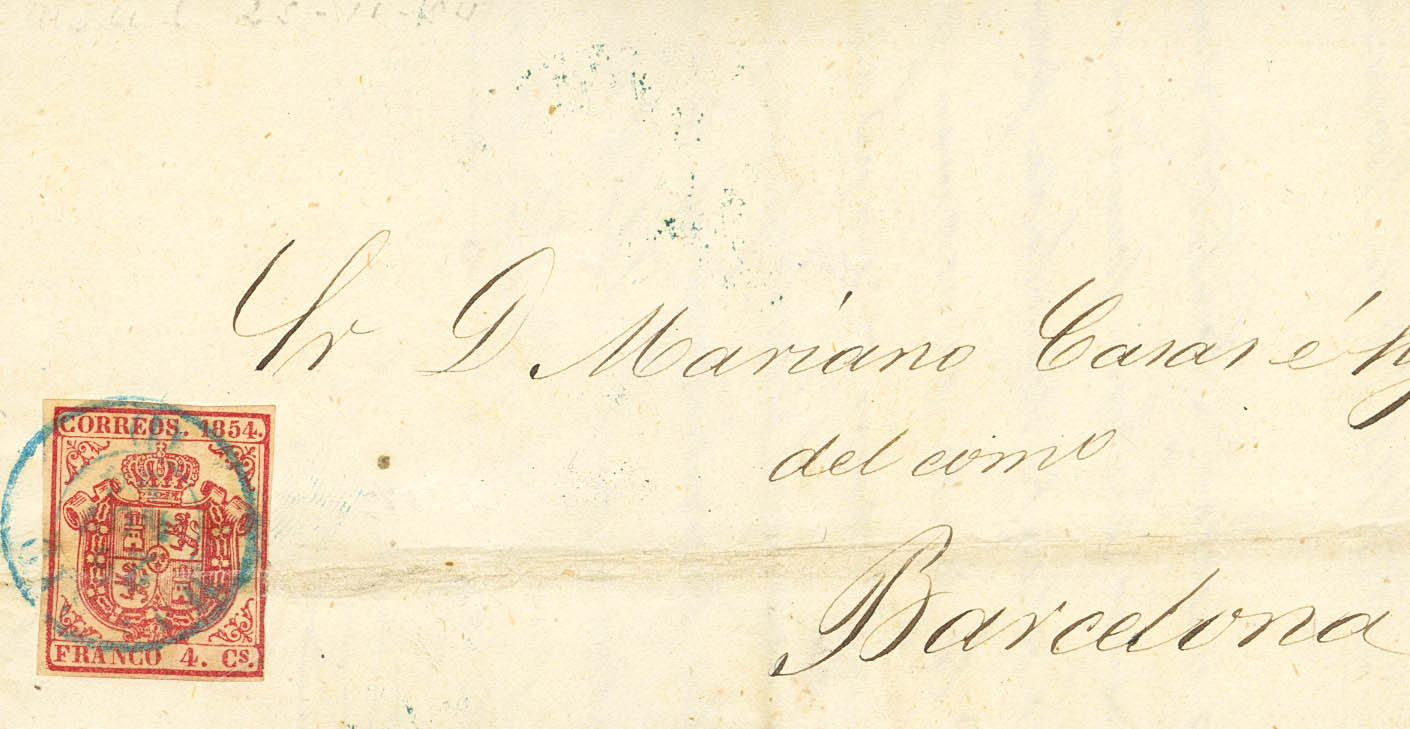 Sr D Mariano Casas é
del como
Barcelona
CORREOS. 1854.
FRANCO 4. Cs.